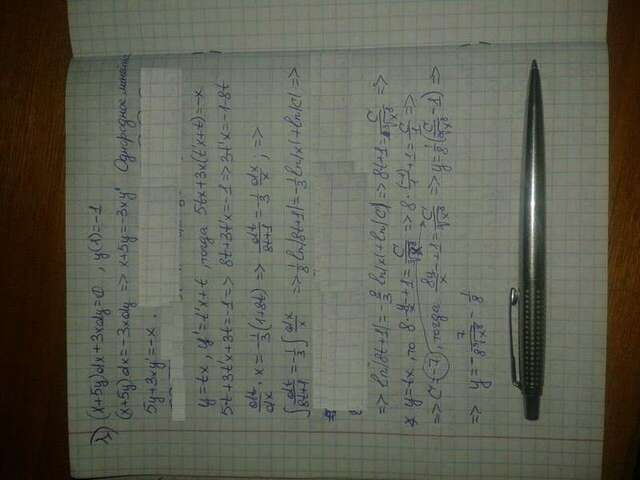 2) (x+5y)dx+3xdy=0, y(1)=-1
(x+5y)dx=-3xdy => x+5y=-3xy' Однородное линейн
5y+3xy'=-x.
y=tx, y'=t'x+t, тогда 5tx+3x(t'x+t)=-x
5t+3t'x+3t=-1 => 8t+3t'x=-1 => 3t'x=-1-8t
dt/dx · x=-1/3(1+8t) => dt/8t+1=-1/3 dx/x; =>
∫dt/8t+1=-1/3∫dx/x => 1/8 ln|8t+1|=-1/3 ln|x|+ln|C| =>
=> ln|8t+1|=-8/3 ln|x|+ln|C| => 8t+1=C/∛x⁸ =>
y=tx, то 8·y/x+1=C/∛x⁸ => 8·(-1)/1+1=C/1 =>
=> C=-7, тогда 8y/x+1=C/∛x⁸ => y=1/8(C/∛x⁸-1) =>
=> y=-7/8∛x⁸-1/8